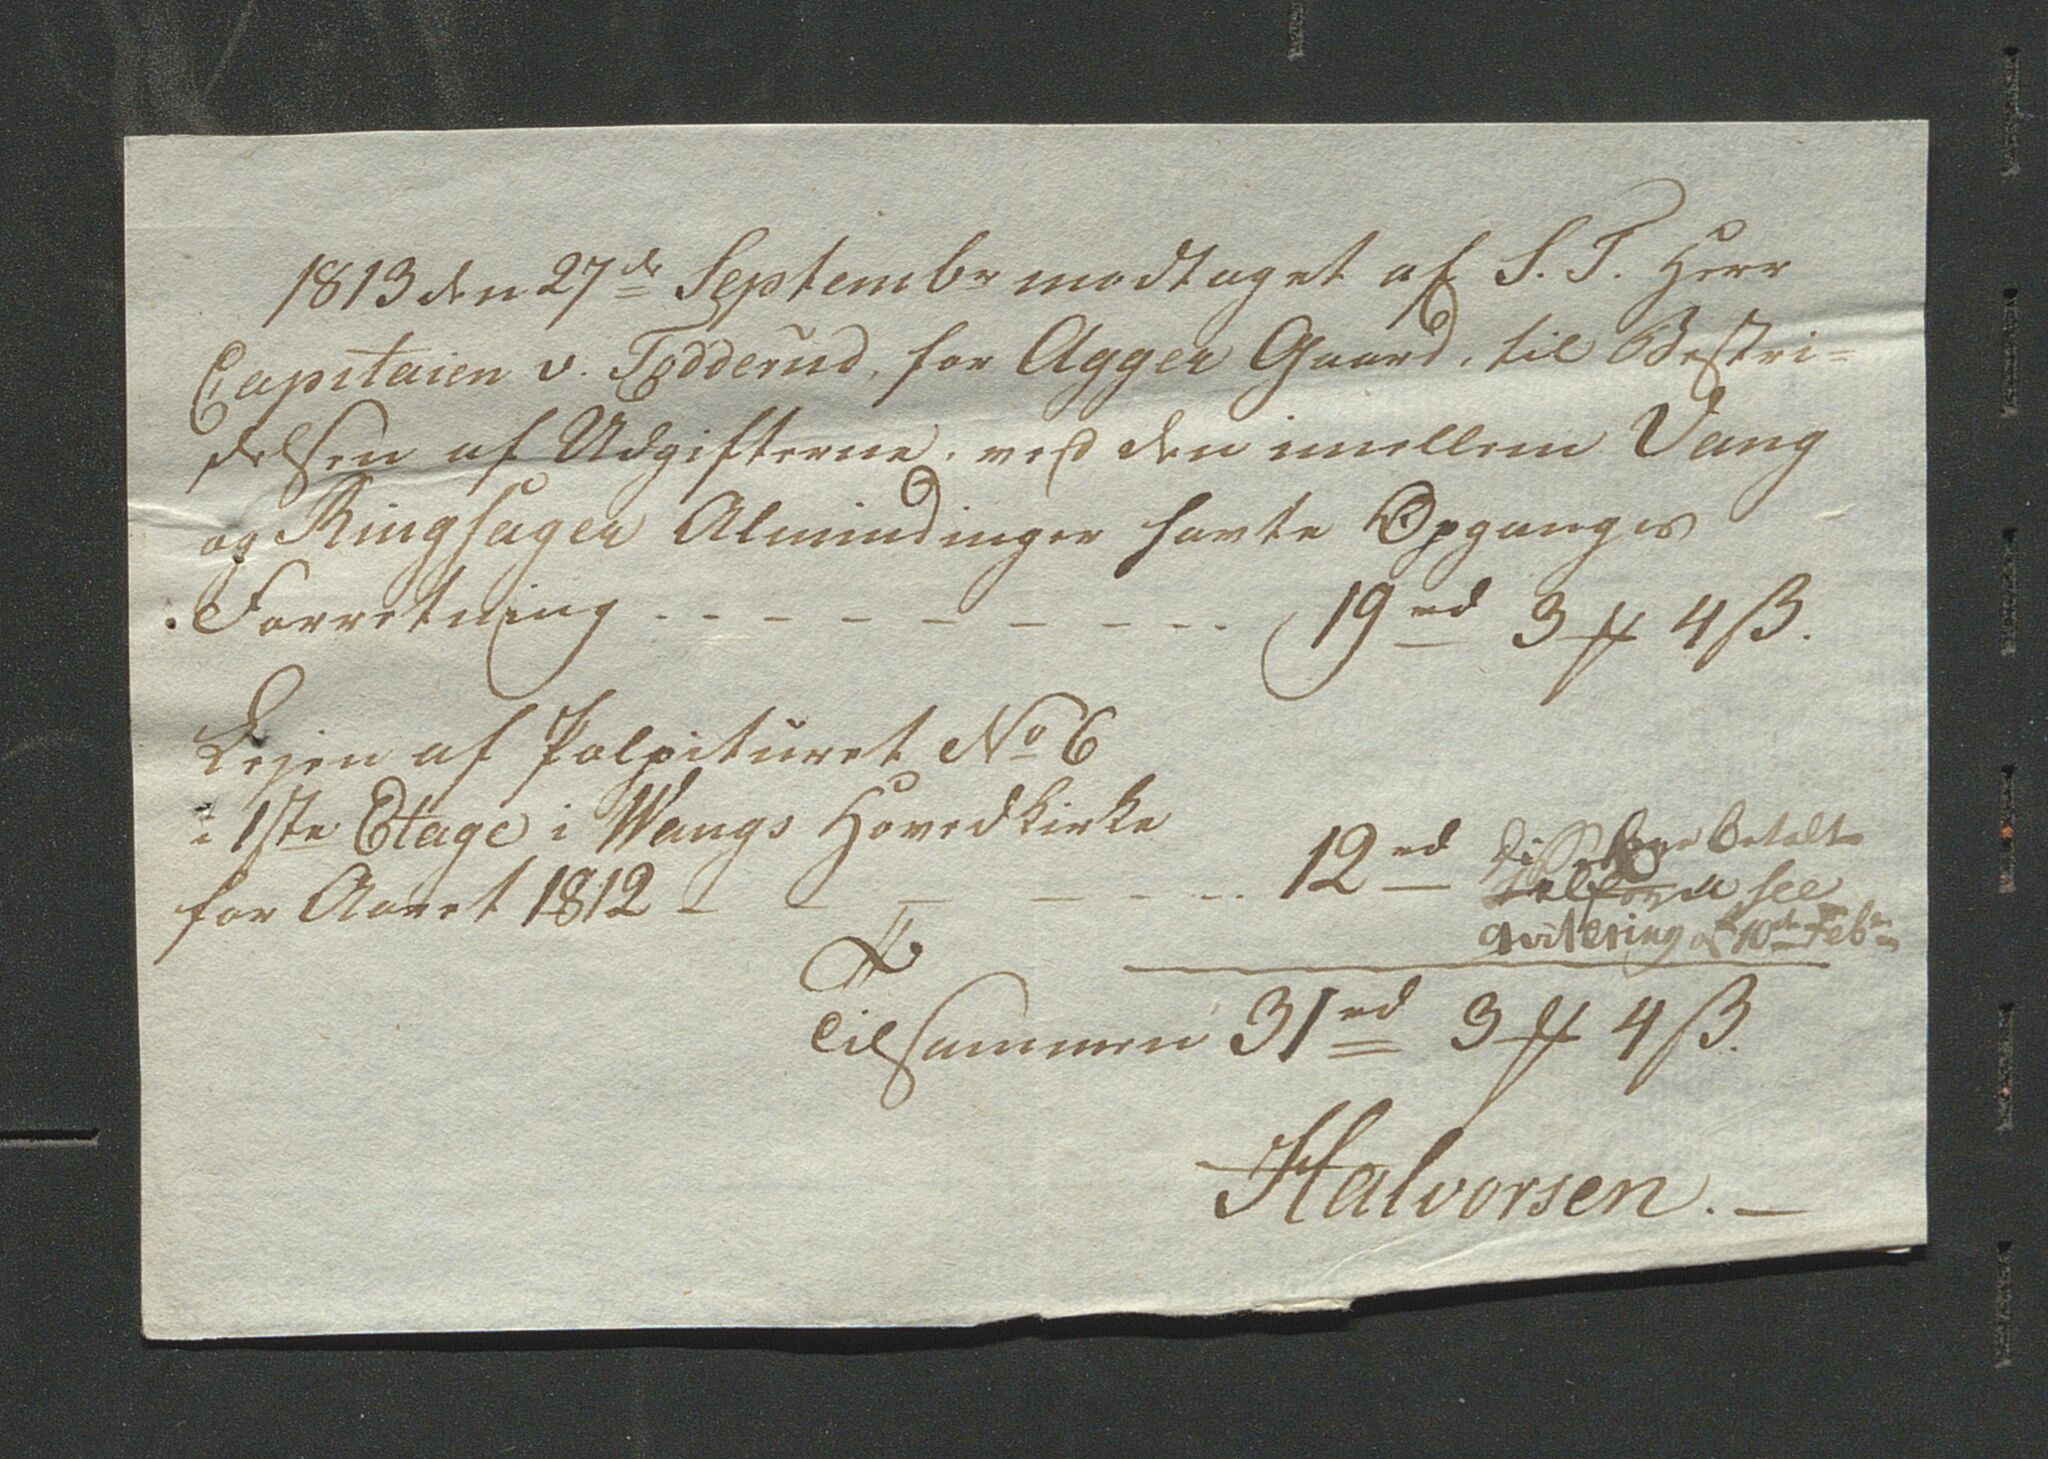 1813 den 27de Septembr modtaget af S. T. Herr
Capitaien v. Todderud, for Agger Gaard, til Bestri=
delsen af Udgifterne, ved den imellem Vang
og Ringsager Almindinger havte Opgangs
Forretning - - - - - - - - 19 rd 3 # 4 ß.
Lejen af Polpituret No 6
i 1ste Etage i Wangs Hovedkirke
for Aaret 1812 - - - - - - 12 rd
Disse betalt
see
qvitering af 10de Febr
Tilsammen 31 rd 3 # 4 ß.
Halvorsen. -